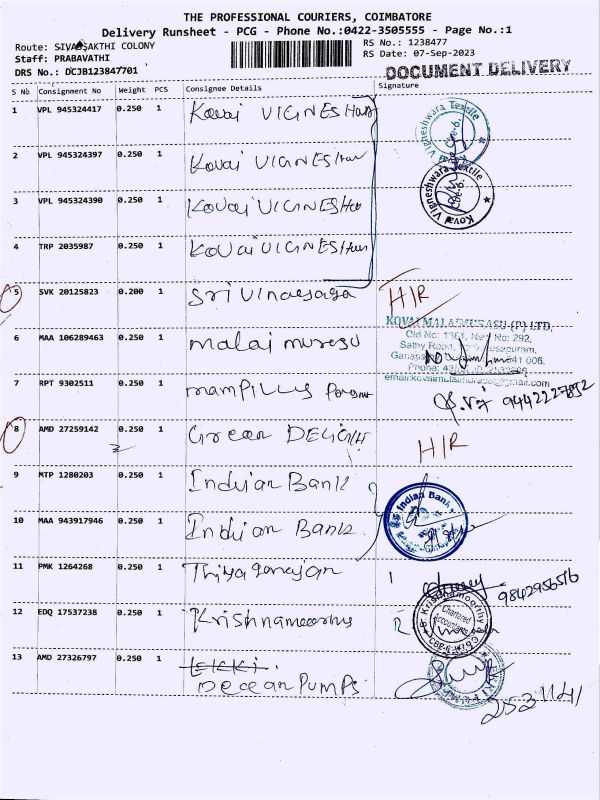 THE PROFESSIONAL COURIERS, COIMBATORE
Delivery Runsheet - PCG - Phone No.:0422-3505555 - Page No.:1
Route: SIVASAKTHI COLONY
Staff: PRABAVATHI
DRS No.: DCJB123847701
RS No.: 1238477
RS Date: 07-Sep-2023
DOCUMENT DELIVERY
S Nb Consignment No Weight PCS Consignee Details Signature
1 VPL 945324417 0.250 1 Kovai VIGNESHwar
2 VPL 945324397 0.250 1 Kovai VIGNESHwar
3 VPL 945324390 0.250 1 Kovai VIGNESHwar
4 TRP 2035987 0.250 1 Kovai VIGNESHwar
Vigneshwara Textile
Kovai Vigneshwara Textile
5 SVK 20125823 0.200 1 Sri Vinayaga H/R
KOVAI MALAI MURASU (P) LTD,
6 MAA 106289463 0.250 1 malai murasu
7 RPT 9302511 0.250 1 mampillys
9442227892
8 AMD 27259142 0.250 1 Green DELIGHT H/R
9 MTP 1280203 0.250 1 Indian Bank
10 MAA 943917946 0.250 1 Indian Bank
Indian Bank
11 PMK 1264268 0.250 1 Thiyagarajan
9842956516
12 EDQ 17537238 0.250 1 Krishnamoorthy
Krishnamoorthy
Chartered
13 AMD 27326797 0.250 1
Deccan Pumps